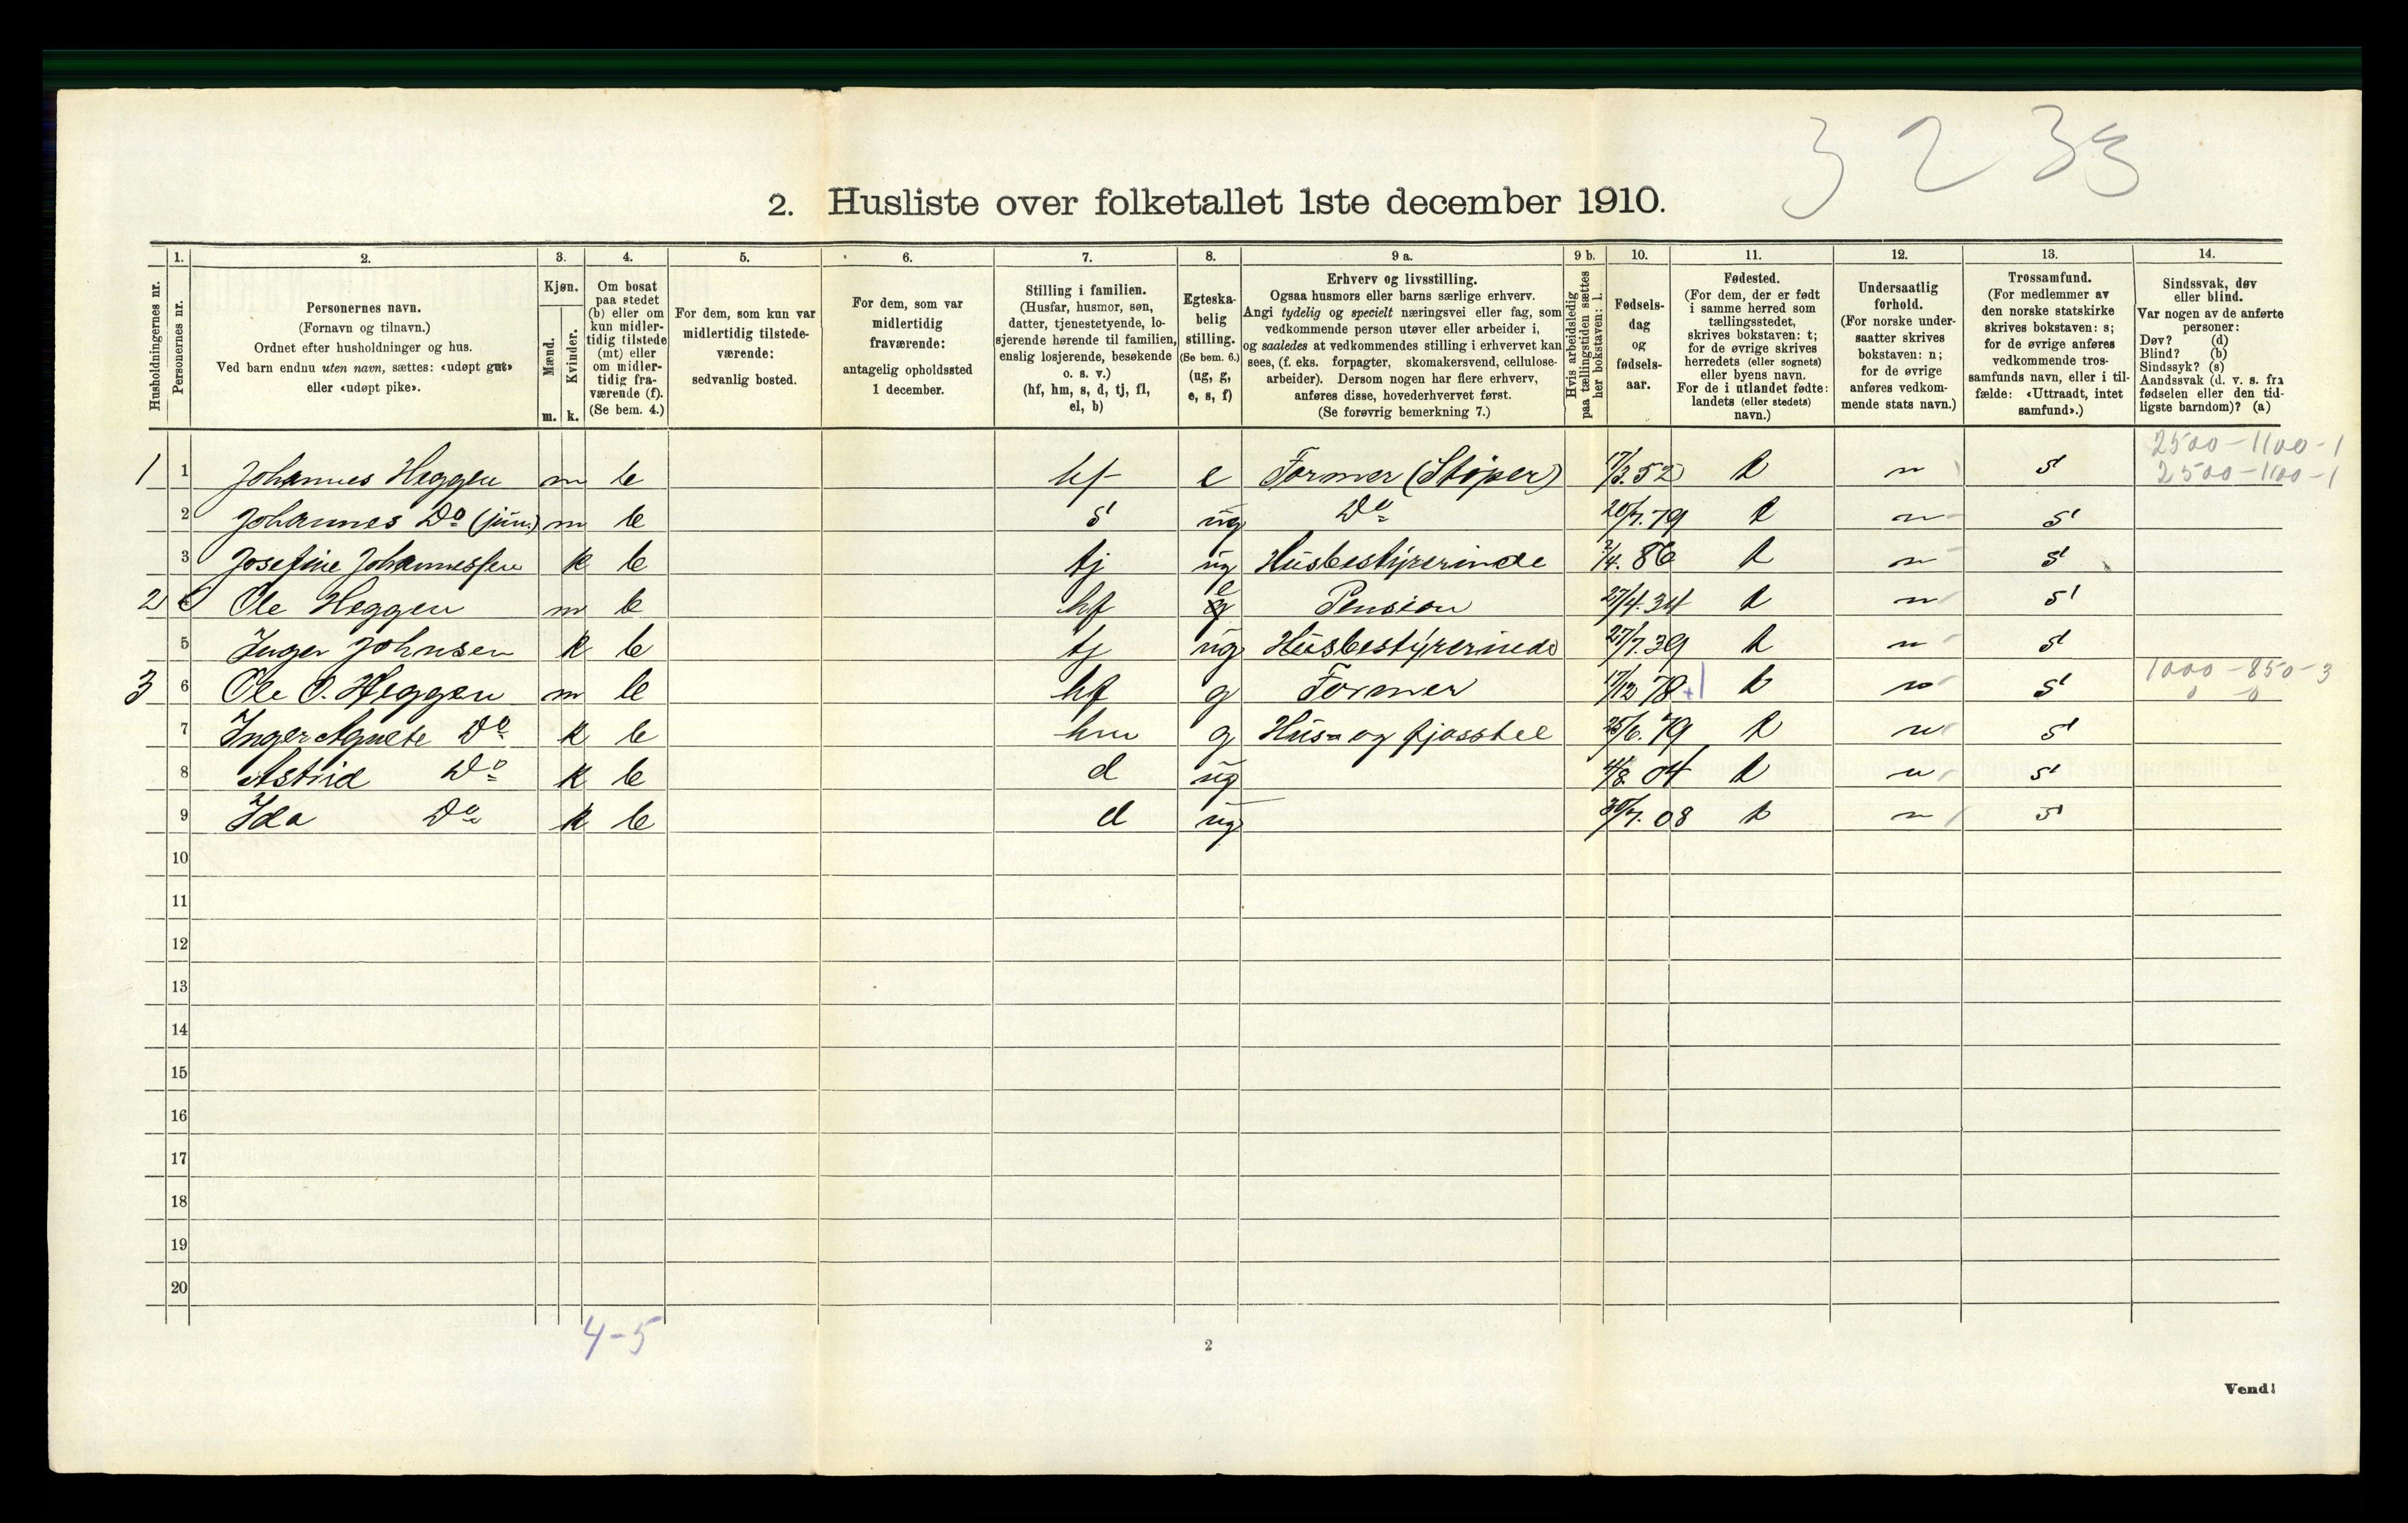 3 2 33
2. Husliste over folketallet 1ste december 1910.
Husholdningernes nr.
1. Personernes nr.
2. Personernes navn. (Fornavn og tilnavn.) Ordnet efter husholdninger og hus. Ved barn endnu uten navn, sættes: «udøpt gut» eller «udøpt pike».
3. Kjøn. Mænd. m. Kvinder. k.
4. Om bosat paa stedet (b) eller om kun midlertidig tilstede (mt) eller om midlertidig fraværende (f). (Se bem. 4.)
5. For dem, som kun var midlertidig tilstedeværende: sedvanlig bosted.
6. For dem, som var midlertidig fraværende: antagelig opholdssted 1 december.
7. Stilling i familien. (Husfar, husmor, søn, datter, tjenestetyende, losjerende hørende til familien, enslig losjerende, besøkende o. s. v.) (hf, hm, s, d, tj, fl, el, b)
8. Egteskabelig stilling. (Se bem. 6.) (ug, g, e, s, f)
9 a. Erhverv og livsstilling. Ogsaa husmors eller barns særlige erhverv. Angi tydelig og specielt næringsvei eller fag, som vedkommende person utøver eller arbeider i, og saaledes at vedkommendes stilling i erhvervet kan sees, (f. eks. forpagter, skomakersvend, cellulosearbeider). Dersom nogen har flere erhverv, anføres disse, hovederhvervet først. (Se forøvrig bemerkning 7.)
9 b. Hvis arbeidsledig paa tællingstiden sættes her bokstaven: l.
10. Fødselsdag og fødselsaar.
11. Fødested. (For dem, der er født i samme herred som tællingsstedet, skrives bokstaven: t; for de øvrige skrives herredets (eller sognets) eller byens navn. For de i utlandet fødte: landets (eller stedets) navn.)
12. Undersaatlig forhold. (For norske undersaatter skrives bokstaven: n; for de øvrige anføres vedkommende stats navn.)
13. Trossamfund. (For medlemmer av den norske statskirke skrives bokstaven: s; for de øvrige anføres vedkommende trossamfunds navn, eller i tilfælde: «Uttraadt, intet samfund».)
14. Sindssvak, døv eller blind. Var nogen av de anførte personer: Døv? (d) Blind? (b) Sindssyk? (s) Aandssvak (d. v. s. fra fødselen eller den tidligste barndom)? (a)
2500-1100-1
1 1 Johannes Heggen m b hf e Former (Støper) 17/3.52 t n s 2500-1100-1
2 Johannes Do (jun.) m b s ug Do 20/7.79 t n s
3 Josefine Johannessen k b tj ug Husbestyrerinde 2/4.86 t n s
2 4 Ole Heggen m b hf e Pension 27/4.34 t n s
5 Inger Johnsen k b tj ug Husbestyrerinde 27/7.39 t n s
3 6 Ole O. Heggen m b hf g Former 17/12 78 +1 t n s 1000-850-3
0 0
7 Inger Agnete Do k b hm g Hus- og fjøsstel 25/6.79 t n s
8 Astrid Do k b d ug 4/8.04 t n s
9 Ida Do k b d ug 30/7.08 t n s
10
11
12
13
14
15
16
17
18
19
20
4-5
2
Vend!